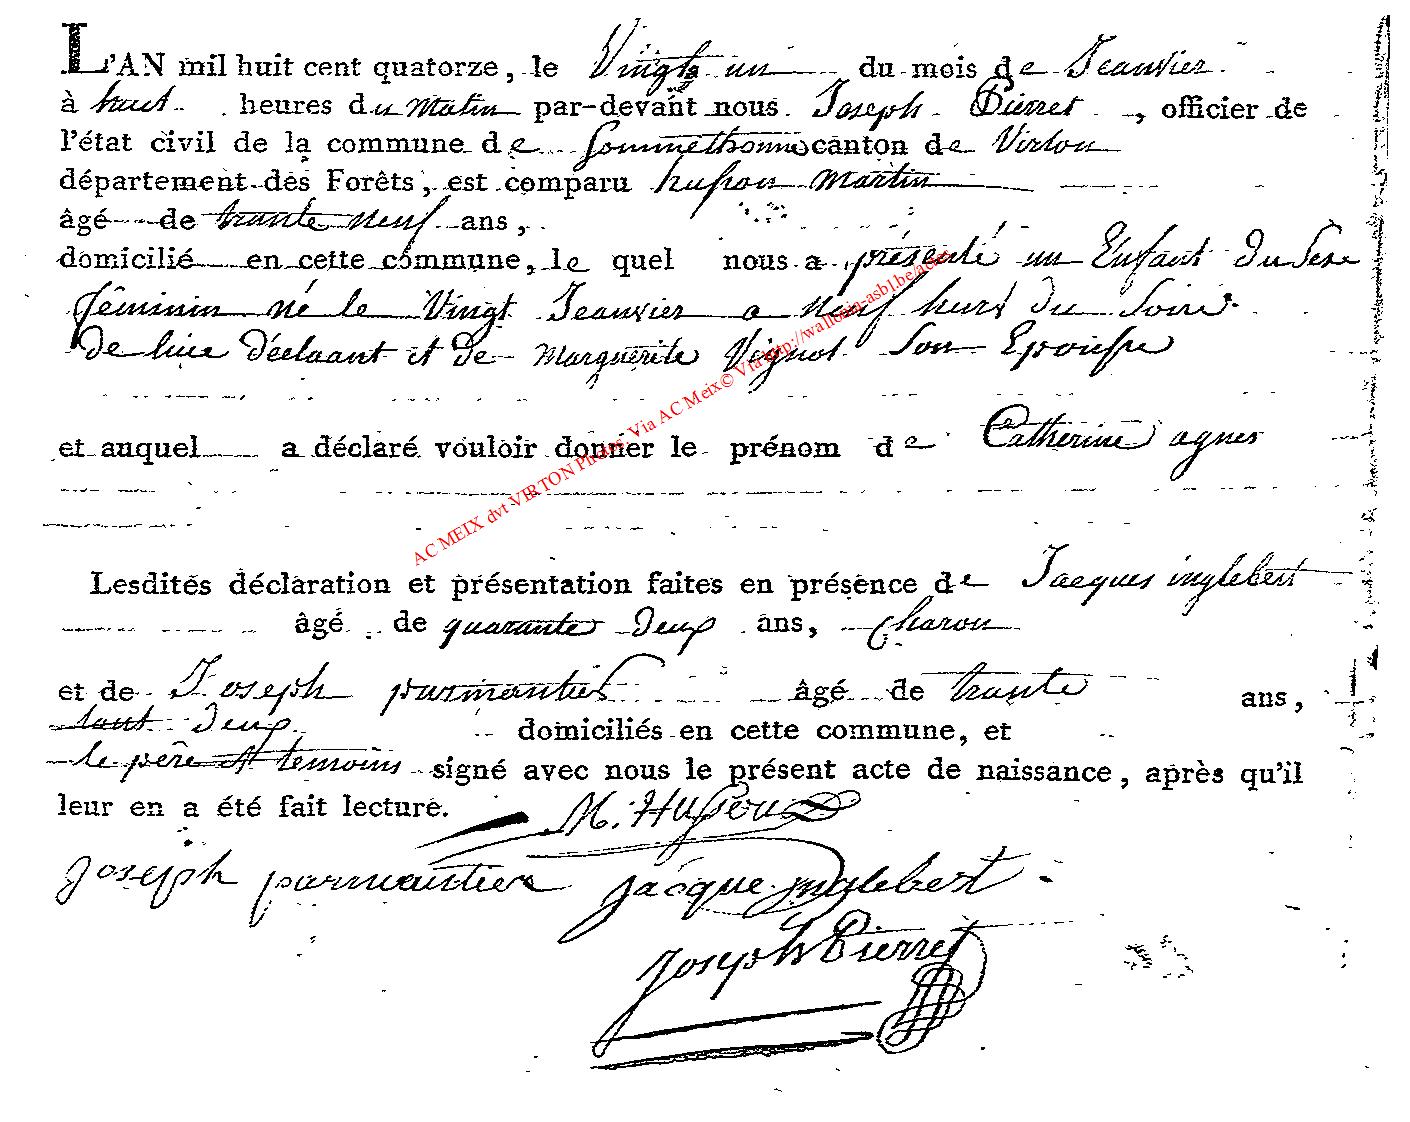 L'AN mil huit cent quatorze, le Vingt un du mois de Jeanvier
à huit heures du Matin par-devant nous Joseph Pierret, officier de
l'état civil de la commune de Sommethonne canton de Virton
département des Forêts, est comparu husson Martin
âgé de trante neuf ans,
domicilié en cette commune, le quel nous a présenté un Enfant du Sexe
féminin né le Vingt Jeanvier a neuf hurs du Soire
de luie déclaant et de Marguerite Vignol Son Epousse
et auquel a déclaré vouloir donner le prénom de Catherine agnes
Lesdités déclaration et présentation faites en présence de Jacques inglebert
âgé de quarante deux ans, Charon
et de Joseph parmantier âgé de trante ans,
deux domiciliés en cette commune, et
le père et temoins signé avec nous le présent acte de naissance, après qu'il
leur en a été fait lecture. M. Husson
Joseph parmentier Jacque Inglebert
Joseph Pierret
AC MEIX dvt VIRTON Photos Via AC Meix© Via http://wallonia-asbl.be/actes